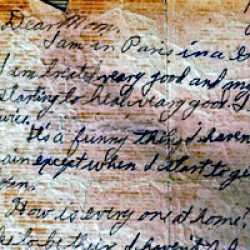 Dear Mom,
I am in Paris in a
I am treated very good and my
starting to heal very good. I
It's a funny thing I haven
pain except when I start to ge
How is every one at home
to be there I haven't